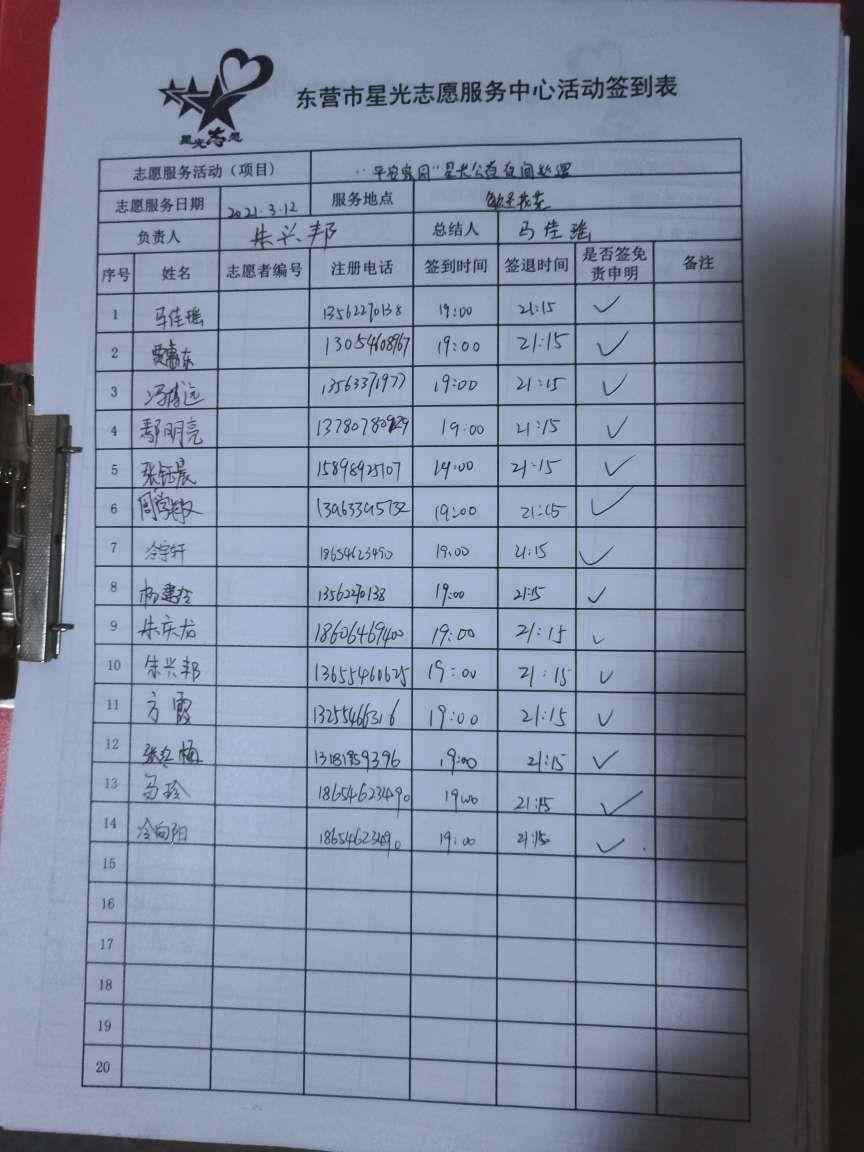 星光志愿
东营市星光志愿服务中心活动签到表
志愿服务活动（项目） "平安家园"星光公益夜间巡逻
志愿服务日期 2021.3.12 服务地点
负责人 朱兴邦 总结人 马佳瑶
序号 姓名 志愿者编号 注册电话 签到时间 签退时间 是否签免责申明 备注
1 马佳瑶 13562270138 19:00 21:15 ✓
2 13054608967 19:00 21:15 ✓
3 冯博远 13563371977 19:00 21:15 ✓
4 鄢明亮 19:00 21:15 ✓
5 张钰晨 15898925107 19:00 21:15 ✓
6 13963395732 19:00 21:15 ✓
7 冷宇轩 18654623490 19:00 21:15 ✓
8 杨建玲 13562270138 19:00 21:15 ✓
9 朱庆龙 18606469400 19:00 21:15 ✓
10 朱兴邦 13655460625 19:00 21:15 ✓
11 方霞 13255466316 19:00 21:15 ✓
12 张冬梅 13181959396 19:00 21:15 ✓
13 马玲 18654623490 19:00 21:15 ✓
14 冷向阳 18654623490 19:00 21:15 ✓
15
16
17
18
19
20